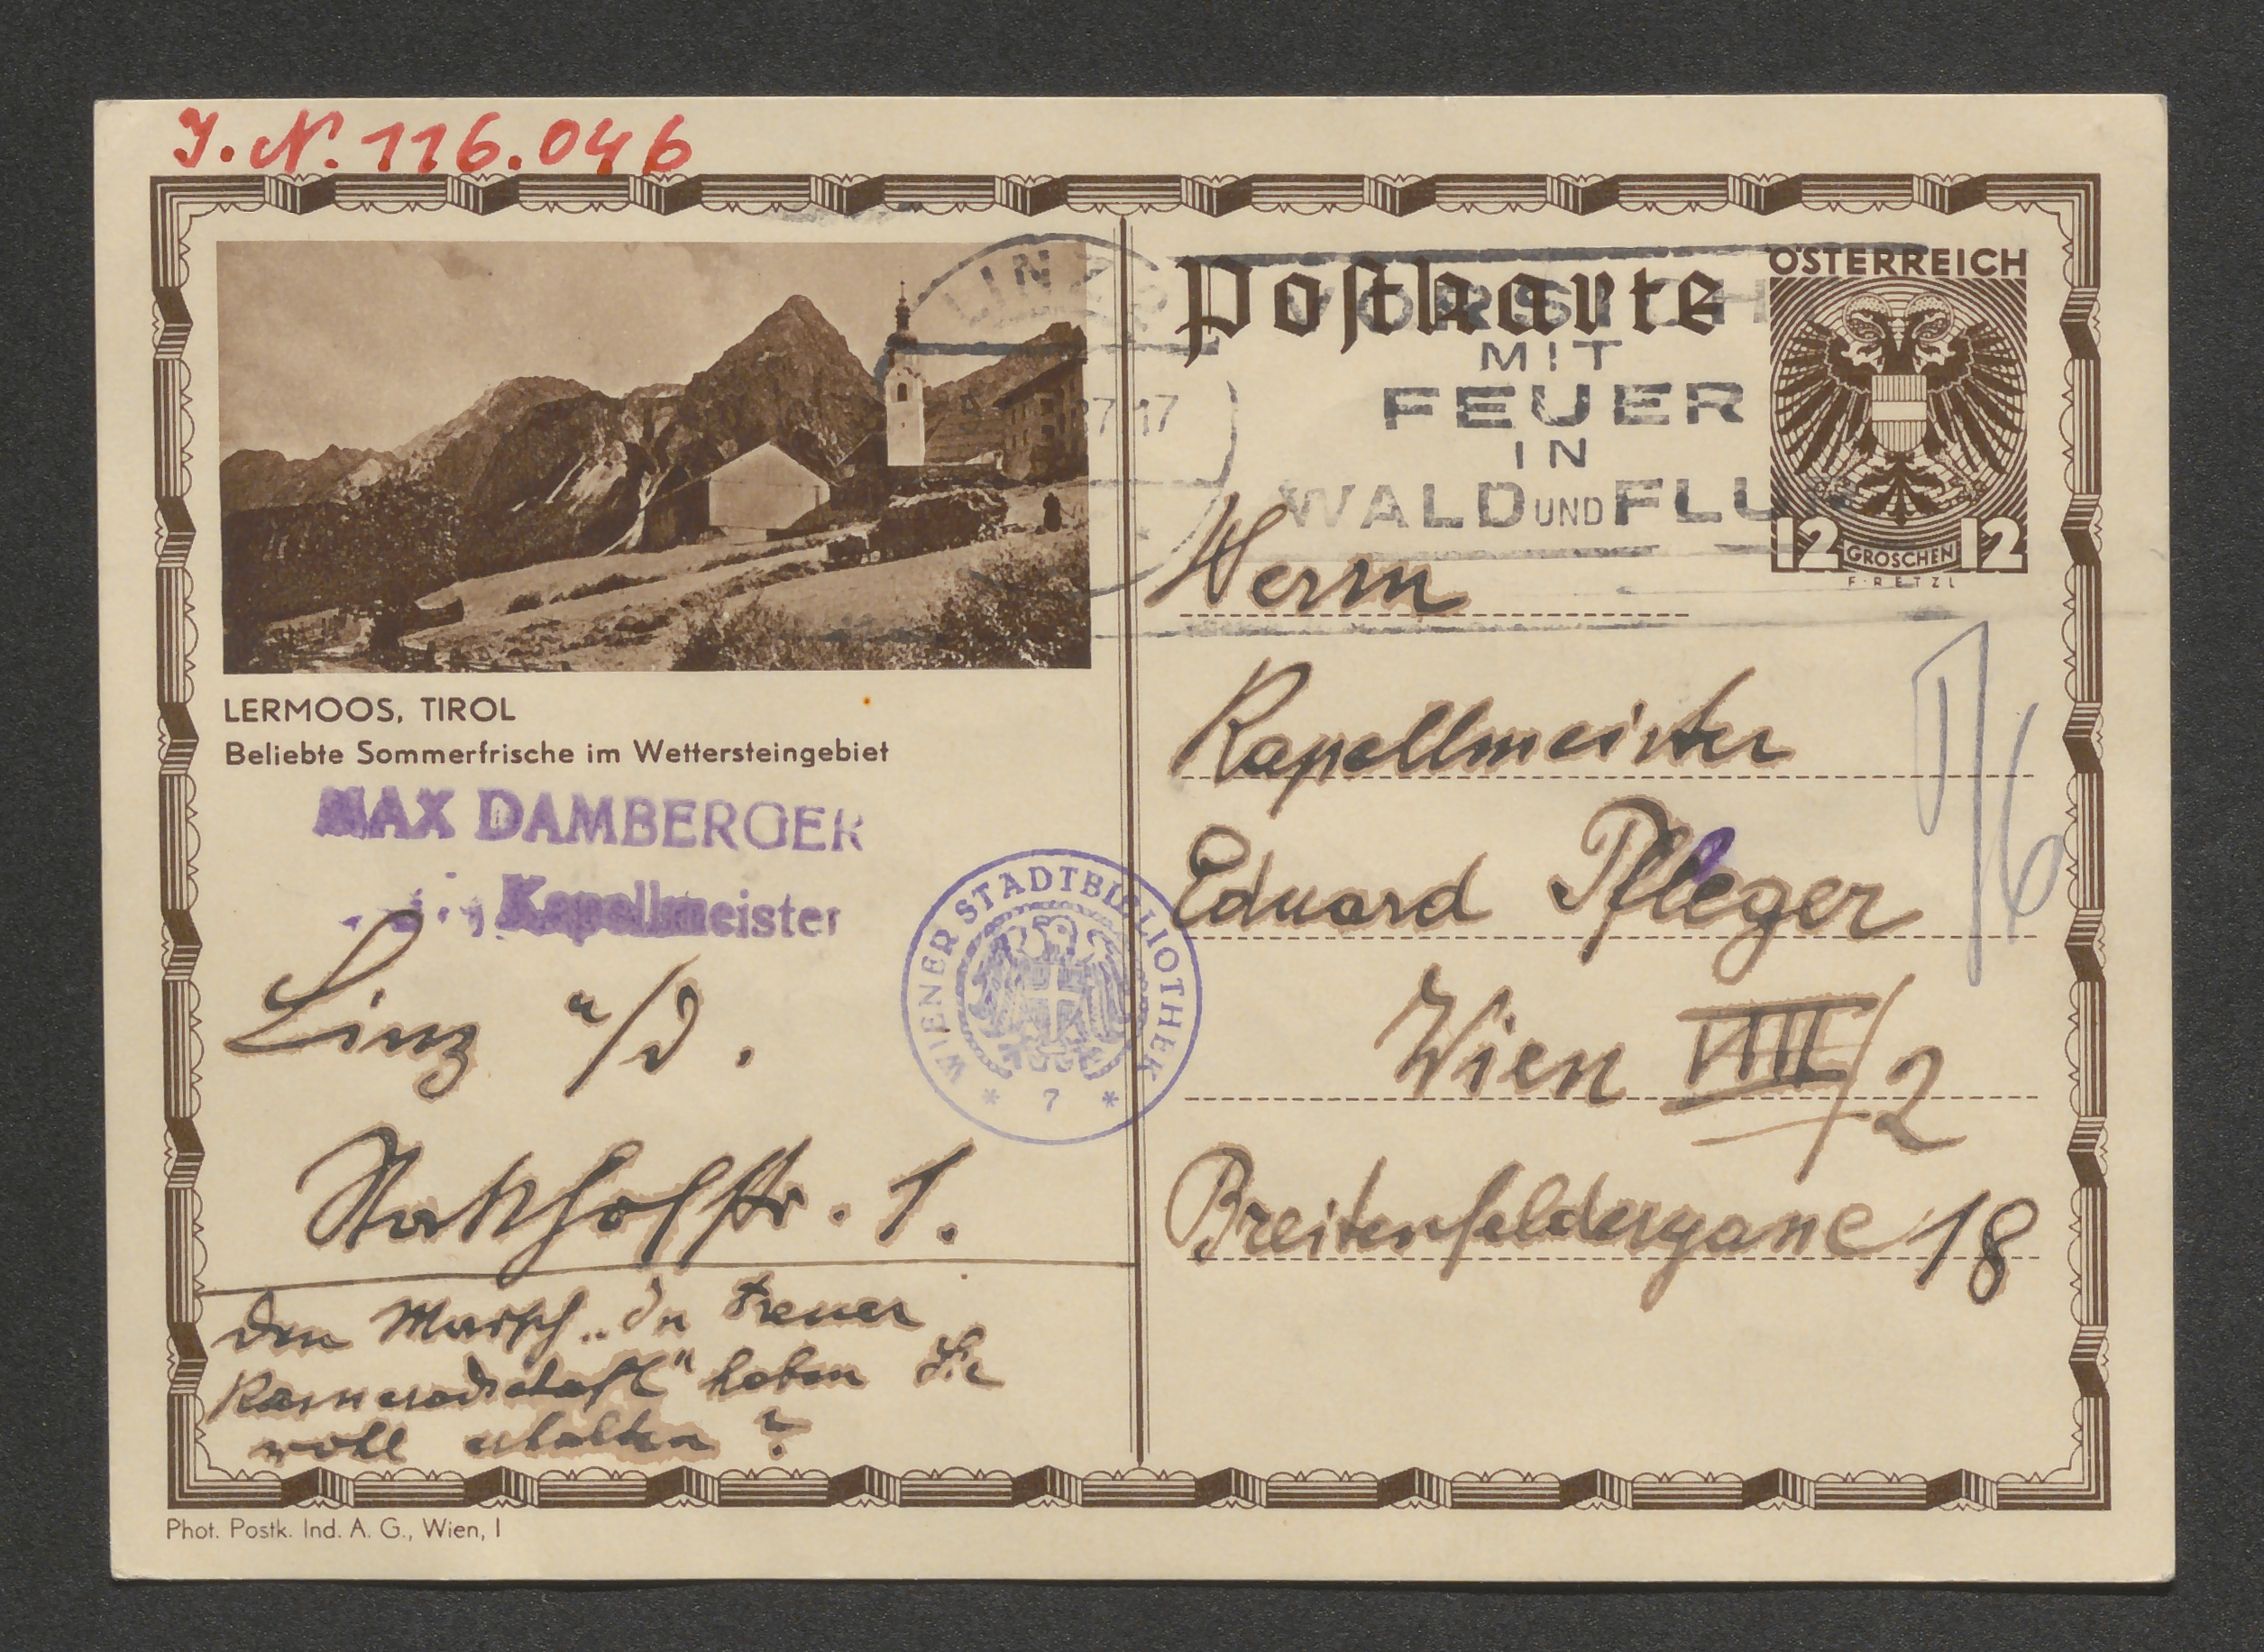 J.N. 116.046
LERMOOS, TIROL
Beliebte Sommerfrische im Wettersteingebiet
MAX DAMBERGER
Kapellmeister
Linz a/D.
str. 1.
Den Marsch „In treuer
Kameradschaft" haben Sie
wohl erhalten?
Phot. Postk. Ind. A. G., Wien, I
WIENER STADTBIBLIOTHEK
* 7 *
LINZ
Postkarte
VORSICHT
MIT
FEUER
IN
WALD UND FLUR
ÖSTERREICH
12 GROSCHEN 12
F·RETZL
Herrn
Kapellmeister
Eduard Pfleger
Wien VIII/2
Breitenfeldergasse 18